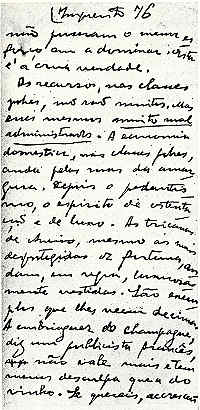 (Imprensa 76
não puseram o menor es
forço em a dominar. Esta
é a crua verdade.
Os recursos, nas classes
pobres, não são muitos. Mas
esses mesmos muito mal
administrados. A economia
domestica, nas classes pobres,
anda pelas ruas da amar
gura. Depois o pedantis
mo, o espirito de ostenta
ção e de luxo. As tricanas
de Aveiro, mesmo as mais
desprotegidas de fortuna, an
dam, em regra, luxuosa
mente vestidas. São exem
plos que lhes veem de cima.
A embriaguez do champagne,
diz um publicista francês,
não vale mais e tem
menos desculpa que a do
vinho. Se quereis, accrescen